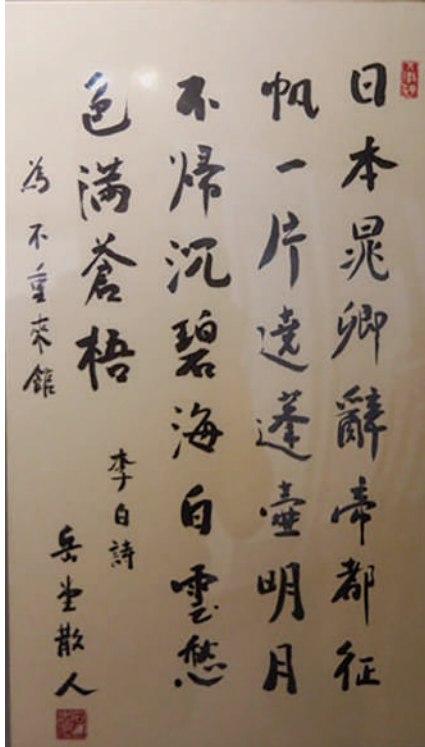 日本晁卿辭帝都征
帆一片遶蓬壺明月
不歸沉碧海白雲愁
色滿蒼梧
李白詩
為不重來館
岳堂散人